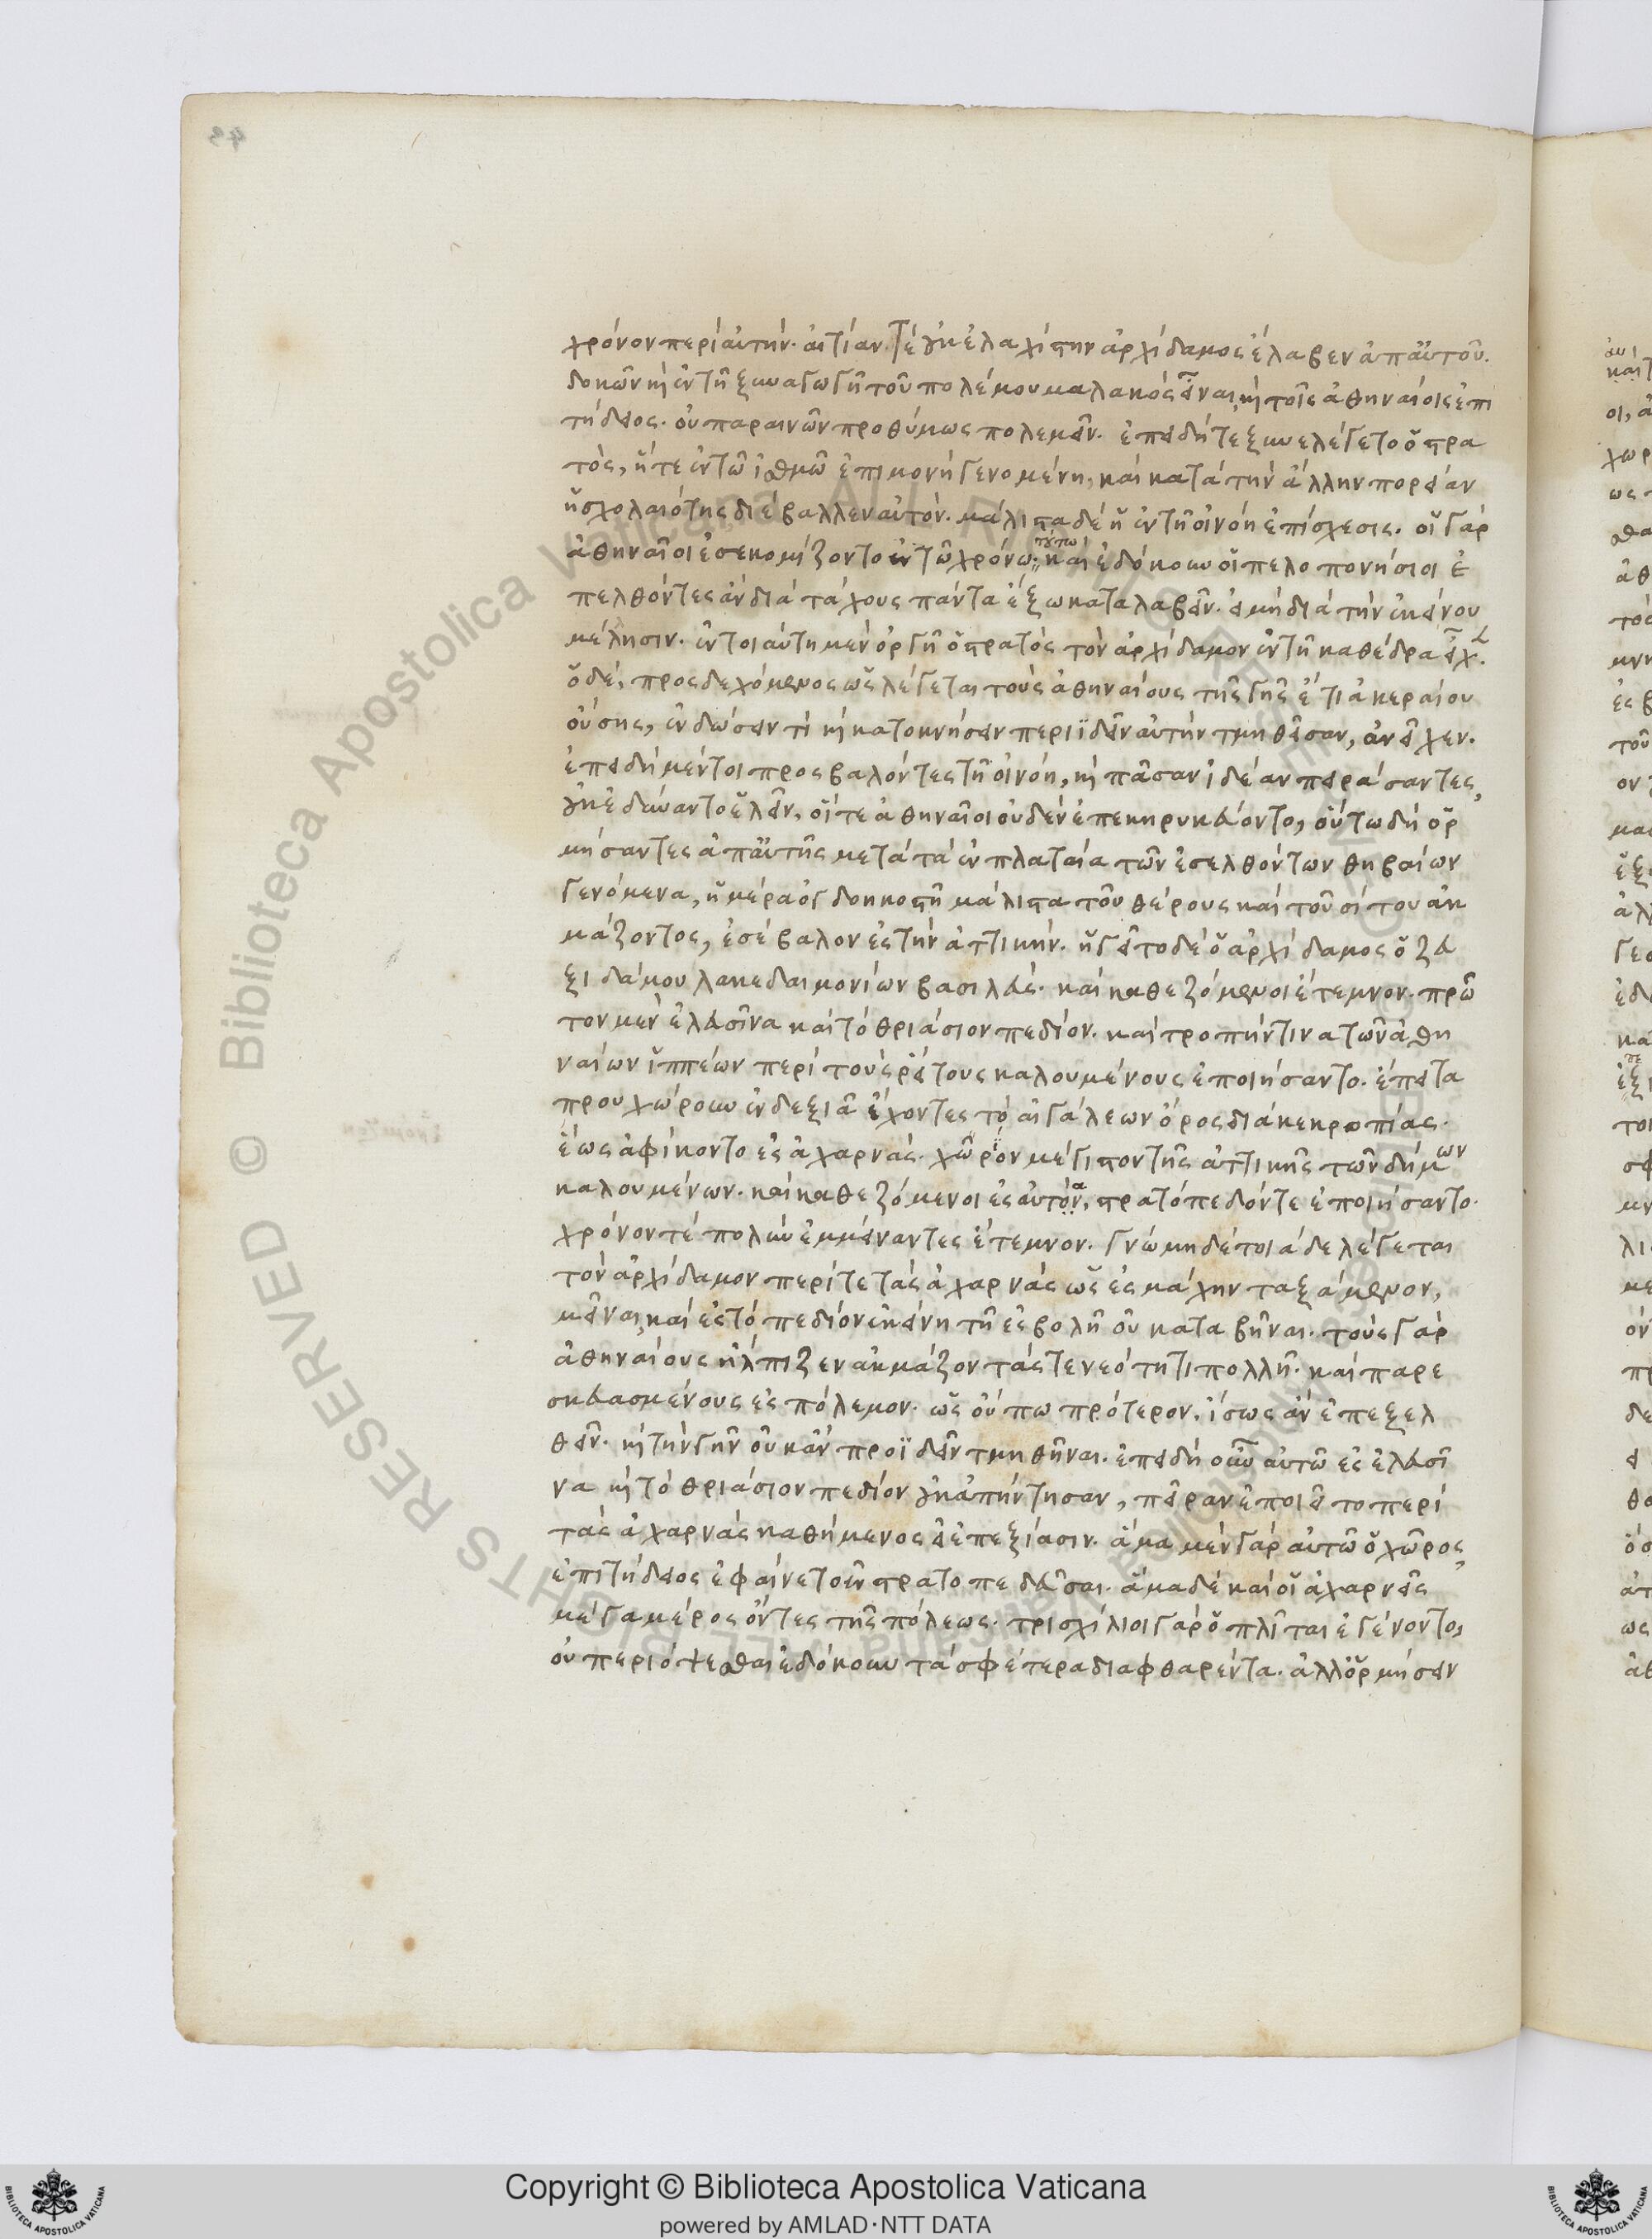 χρόνον περὶ αὐτὴν. αἰτίαν τὲ οὐκ ἐλαχίστην ἀρχίδαμος ἔλαβεν ἀπ' αὐτοῦ.
δοκῶν καὶ ἐν τῇ ξυναγωγῇ τοῦ πολέμου μαλακὸς εἶναι, καὶ τοῖς ἀθηναίοις ἐπι
τήδειος. οὐ παραινῶν προθύμως πολεμεῖν. ἐπειδή τε ξυνελέγετο ὁ στρα
τὸς, ἥ τε ἐν τῷ ἰσθμῷ ἐπιμονὴ γενομένη, καὶ κατὰ τὴν ἄλλην πορείαν
ἡ σχολαιότης διέβαλλεν αὐτόν. μάλιστα δὲ ἡ ἐν τῇ οἰνόῃ ἐπίσχεσις. οἱ γὰρ
ἀθηναῖοι ἐσεκομίζοντο ἐν τῷ χρόνῳ τούτω καὶ ἐδόκουν οἱ πελοπονήσιοι ἐ
πελθόντες ἂν διὰ τάχους πάντα ἔξω καταλαβεῖν. εἰ μὴ διὰ τὴν ἐκείνου
μέλησιν. ἐν τοιαύτη μὲν ὀργῇ ὁ στρατὸς τὸν ἀρχίδαμον ἐν τῇ καθέδρα εἶχ.
ὁ δὲ, προσδεχόμενος ὡς λέγεται τοὺς ἀθηναίους τῆς γῆς ἔτι ἀκεραίου
οὔσης, ἐνδώσειν τὶ καὶ κατοκνήσειν περιϊδεῖν αὐτὴν τμηθεῖσαν, ἀνεῖχεν.
ἐπειδὴ μέντοι προσβαλόντες τῇ οἰνόῃ, καὶ πᾶσαν ἰδέαν πειράσαντες,
οὐκ ἐδύναντο ἑλεῖν, οἵ τε ἀθηναῖοι οὐδὲν ἐπεκηρυκεύοντο, οὕτω δὴ ὁρ
μήσαντες ἀπ' αὐτῆς μετὰ τὰ ἐν πλαταία τῶν ἐσελθόντων θηβαίων
γενόμενα, ἡμέρα ὀγδοηκοστῇ μάλιστα τοῦ θέρους καὶ τοῦ σίτου ἀκ
μάζοντος, ἐσέβαλον ἐς τὴν ἀττικήν. ἡγεῖτο δὲ ὁ ἀρχίδαμος ὁ ζευ
ξιδάμου λακεδαιμονίων βασιλεύς. καὶ καθεζόμενοι ἔτεμνον. πρῶ
τον μὲν ἐλευσῖνα καὶ τὸ θριάσιον πεδίον. καὶ τροπήν τινα τῶν ἀθη
ναίων ἱππέων περὶ τοὺς ῥείτους καλουμένους ἐποιήσαντο. ἔπειτα
προυχώρουν ἐν δεξιᾶ ἔχοντες τὸ αἰγάλεων ὄρος διὰ κεκροπίας.
ἕως ἀφίκοντο ἐς ἀχαρνάς. χῶρον μέγιστον τῆς ἀττικῆς τῶν δήμων
καλουμένων. καὶ καθεζόμενοι ἐς αὐτὸν, στρατόπεδόν τε ἐποιήσαντο.
χρόνον τὲ πολὺν ἐμμείναντες ἔτεμνον. γνώμη δὲ τοιάδε λέγεται
τὸν ἀρχίδαμον περί τε τὰς ἀχαρνὰς ὡς ἐς μάχην ταξάμενον,
μεῖναι, καὶ ἐς τὸ πεδίον ἐκείνη τῇ ἐσβολῇ οὐ καταβῆναι. τοὺς γὰρ
ἀθηναίους ἤλπιζεν ἀκμάζοντάς τε νεότητι πολλῇ. καὶ παρε
σκευασμένους ἐς πόλεμον. ὡς οὔπω πρότερον, ἴσως ἂν ἐπεξελ
θεῖν. καὶ τὴν γῆν οὐκ ἂν προϊδεῖν τμηθῆναι. ἐπειδὴ οὖν αὐτῷ ἐς ἐλευσῖ
να καὶ τὸ θριάσιον πεδίον οὐκ ἀπήντησαν, πεῖραν ἐποιεῖτο περὶ
τὰς ἀχαρνὰς καθήμενος εἰ ἐπεξίασιν. ἅμα μὲν γὰρ αὐτῷ ὁ χῶρος
ἐπιτήδειος ἐφαίνετο ἐνστρατοπεδεῦσαι. ἅμα δὲ καὶ οἱ ἀχαρνεῖς
μέγα μέρος ὄντες τῆς πόλεως. τρισχίλιοι γὰρ ὁπλῖται ἐγένοντο,
οὐ περιόψεσθαι ἐδόκουν τὰ σφέτερα διαφθαρέντα. ἀλλ' ὁρμήσειν